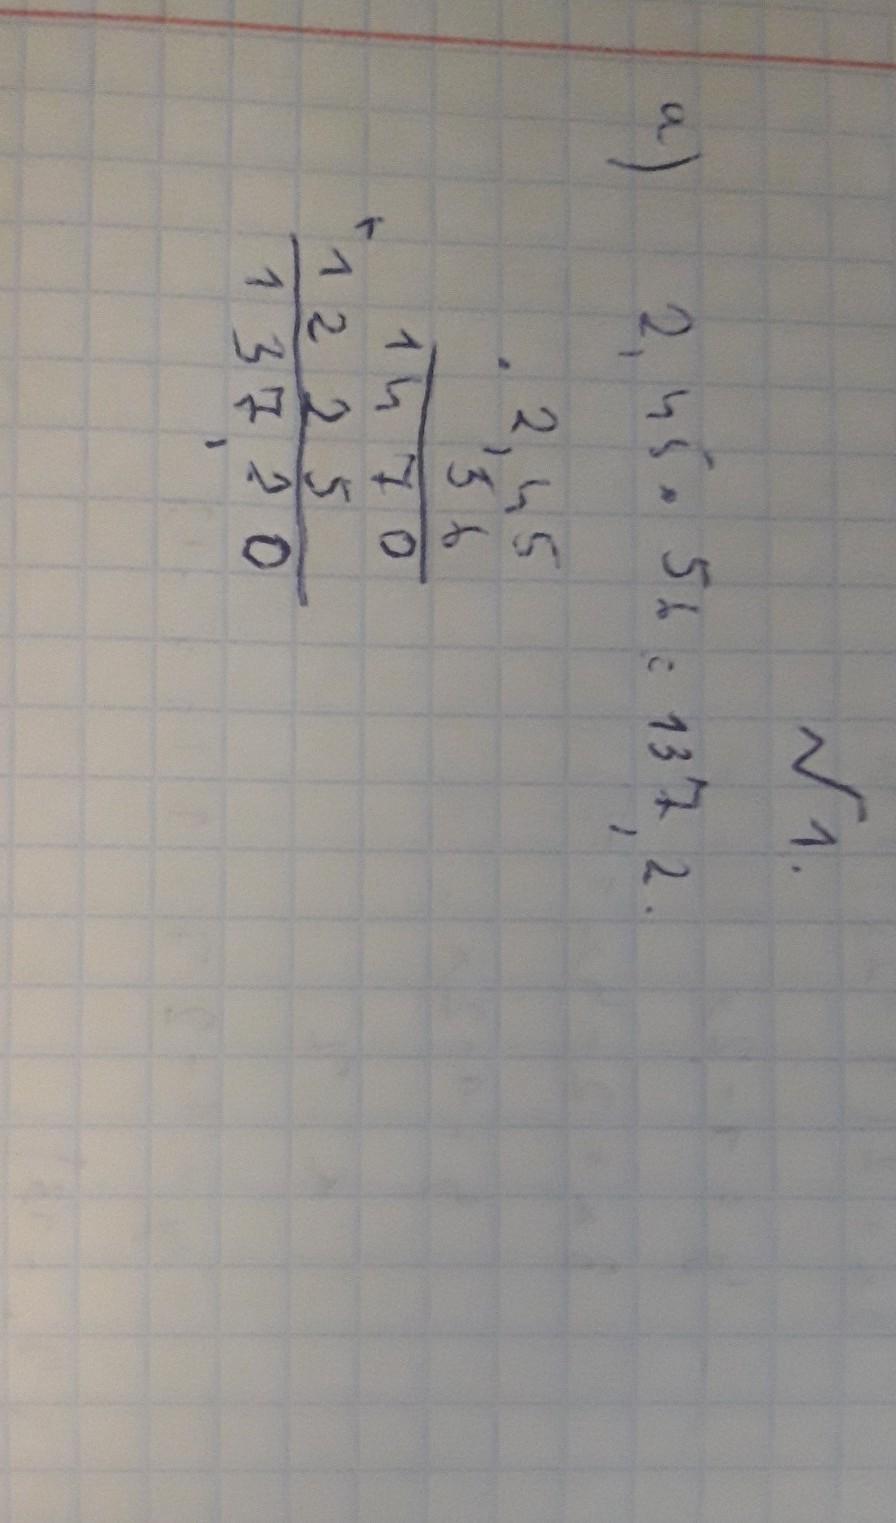 №1.
а) 2,45 · 56 = 137,2.
· 2,45
56
1470
+
1225
137,20